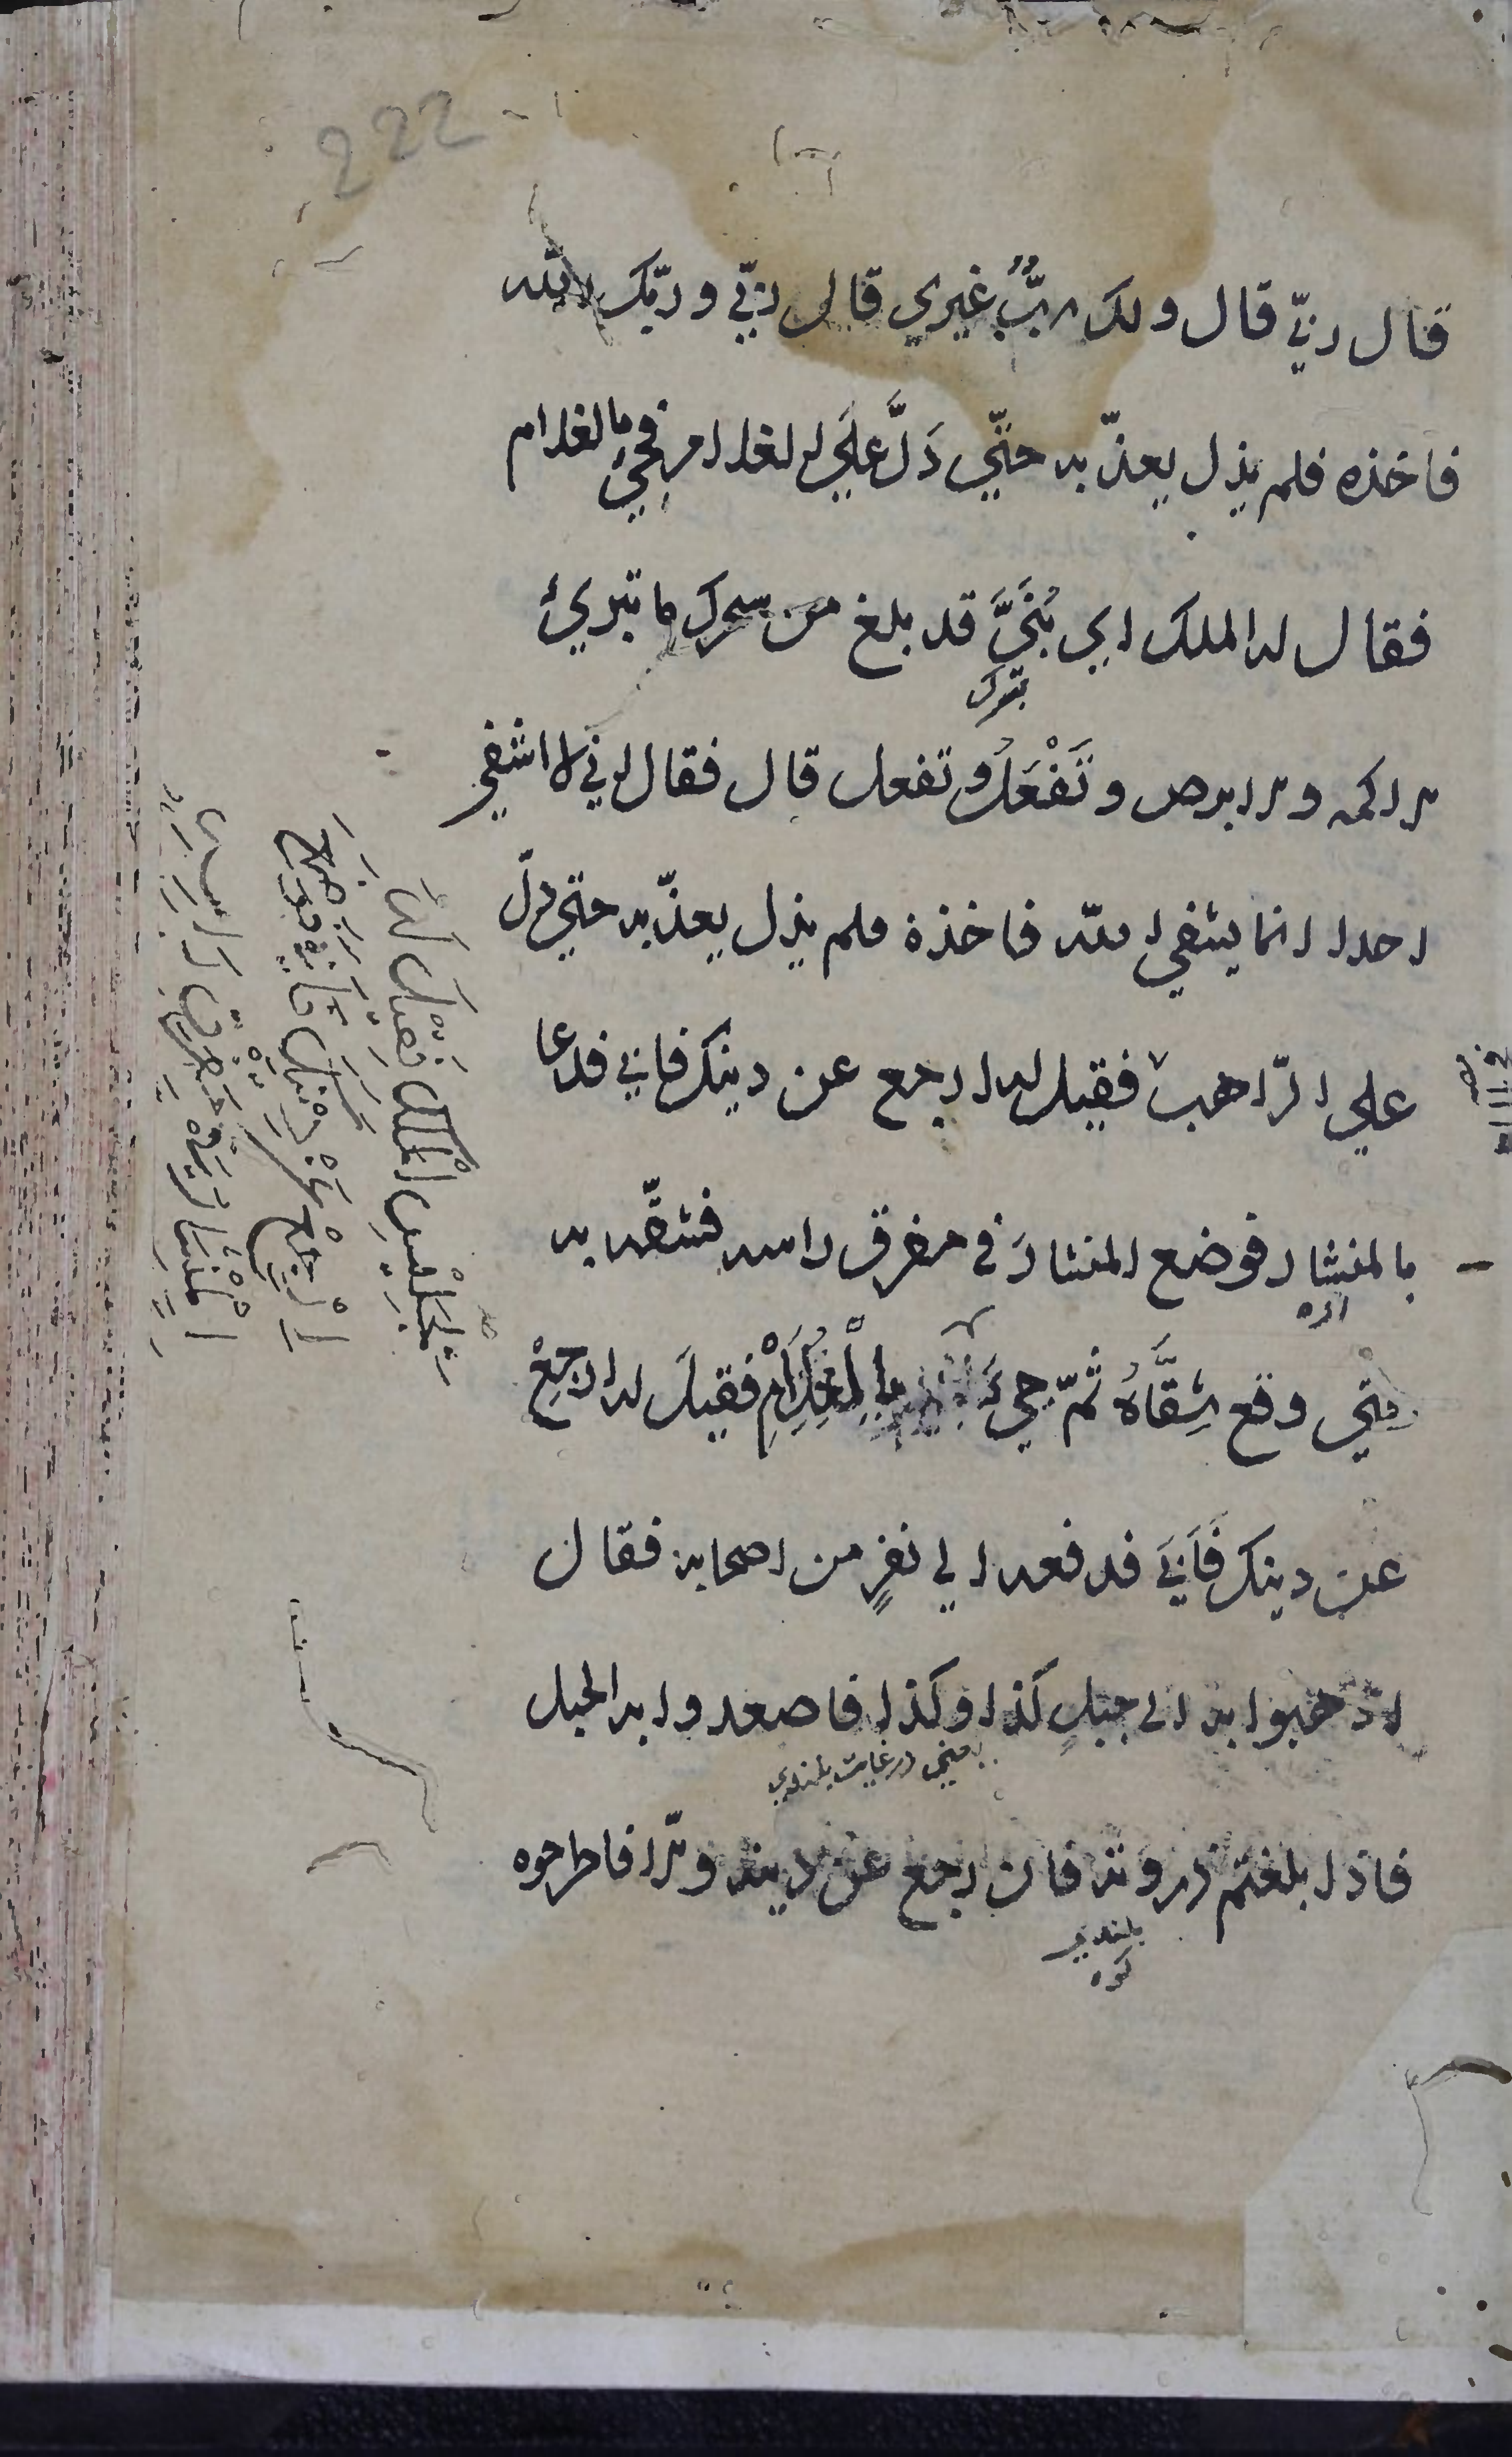 222
قال ربّي قال ولك ربٌّ غيري قال ربّي وربّك الله
فاخذه فلم يزل يعذّبه حتّي دَلَّ عَلَي الغلام فجيء بالغلام
فقال له الملك اي بُنَيَّ قد بلغ من سحرك ما تبرئُ
الاكمه والابرص وتَفْعَلُ وتفعل قال فقال اني لا اشفي
احدا انما يشفي الله فاخذه فلم يزل يعذّبه حتي دلّ
علي الرّاهب فقيل له ارجع عن دينك فابي فدعا
بالمنشار فوضع المنشارَ في مفرق راسه فشقّه به
اره
حتي وقع شِقَّاهُ ثمّ جيءَ بِالْغُلَامِ فقيلَ له ارجِعْ
عن دينك فَاَبَي فدفعه الي نفرٍ من اصحابه فقال
اذهبوا به الي جبلِ كذا وكذا فاصعدوا به الجبل
فاذا بلغتم ذروته فان رجع عن دينه والّا فاطرحوه
بلندي
كوه
بِجَلِيسِ الْمَلِكِ فَقِيلَ لَهُ
اِرْجِعْ عَنْ دِينِكَ فَاَبَي فوضع
الْمِنْشَارَ في مَفْرِقِ راسه